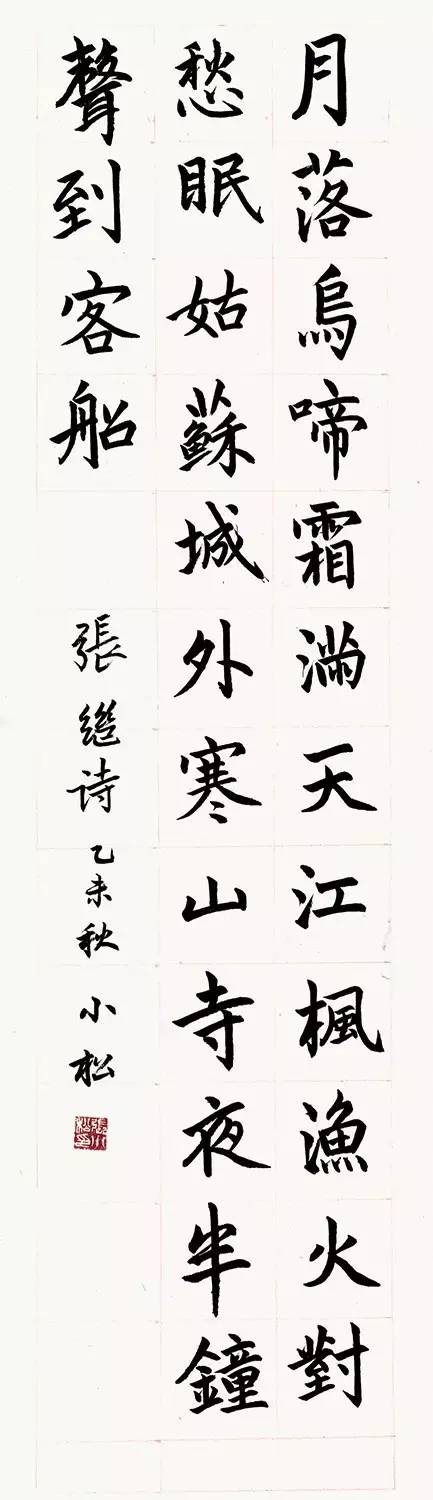 月落烏啼霜滿天江楓漁火對
愁眠姑蘇城外寒山寺夜半鐘
聲到客船
張繼诗乙未秋小松